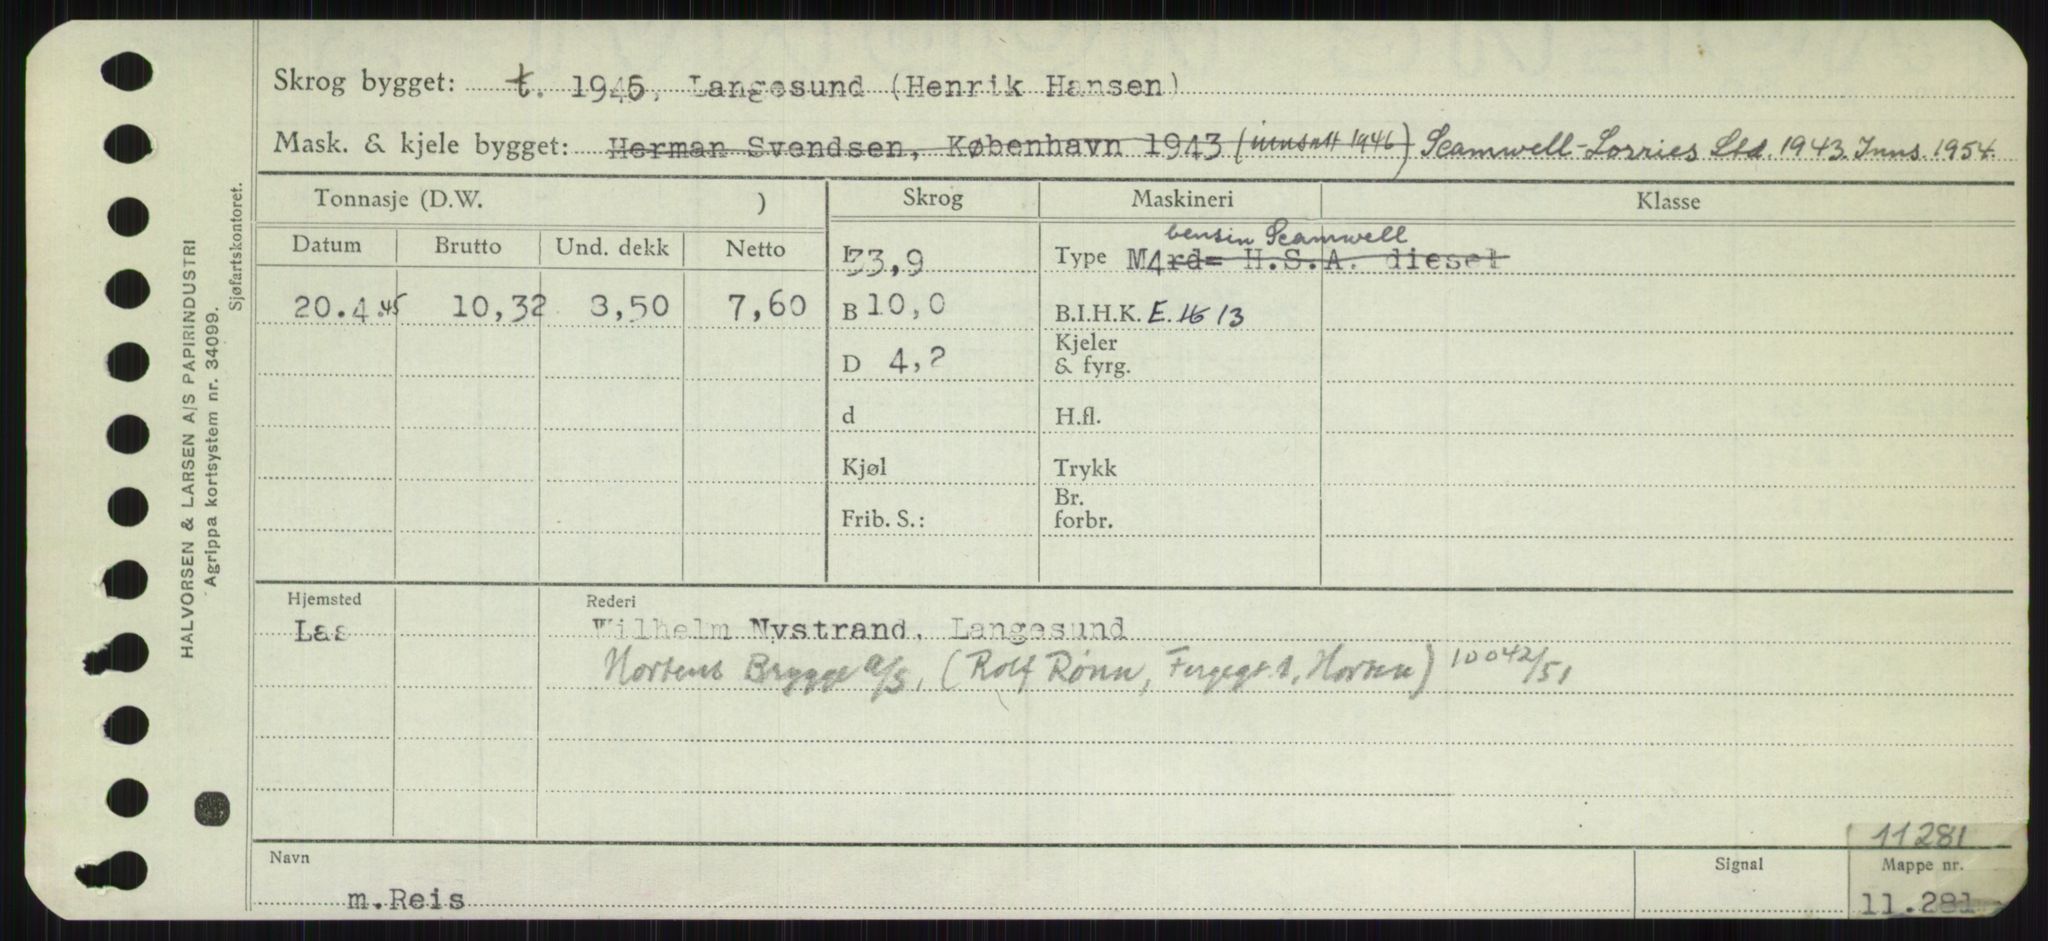 Skrog bygget: t. 1945, Langesund (Henrik Hansen)
Mask. & kjele bygget: Herman Svendsen, København 1943 (innsatt 1946) Scamwell-Lorries Ltd. 1943. Inns. 1954.
Tonnasje (D.W. ) Skrog Maskineri Klasse
Datum Brutto Und. dekk Netto
L 33,9 Type bensin Scamwell
M4rd= H.S.A. diesel
20.4.45 10,32 3,50 7,60 B 10,0 B.I.H.K. E. 16 13
D 4,2 Kjeler & fyrg.
d H.fl.
Kjøl Trykk
Frib. S.: Br. forbr.
Hjemsted Rederi
Las Wilhelm Nystrand, Langesund
Hortens Brygge a/s, (Rolf Rønn, Fergegt. 1, Horten) 10042/51
11281
Navn Signal Mappe nr.
m.Reis 11.281
HALVORSEN & LARSEN A/S PAPIRINDUSTRI
Agrippa kortsystem nr. 34099.
Sjøfartskontoret.